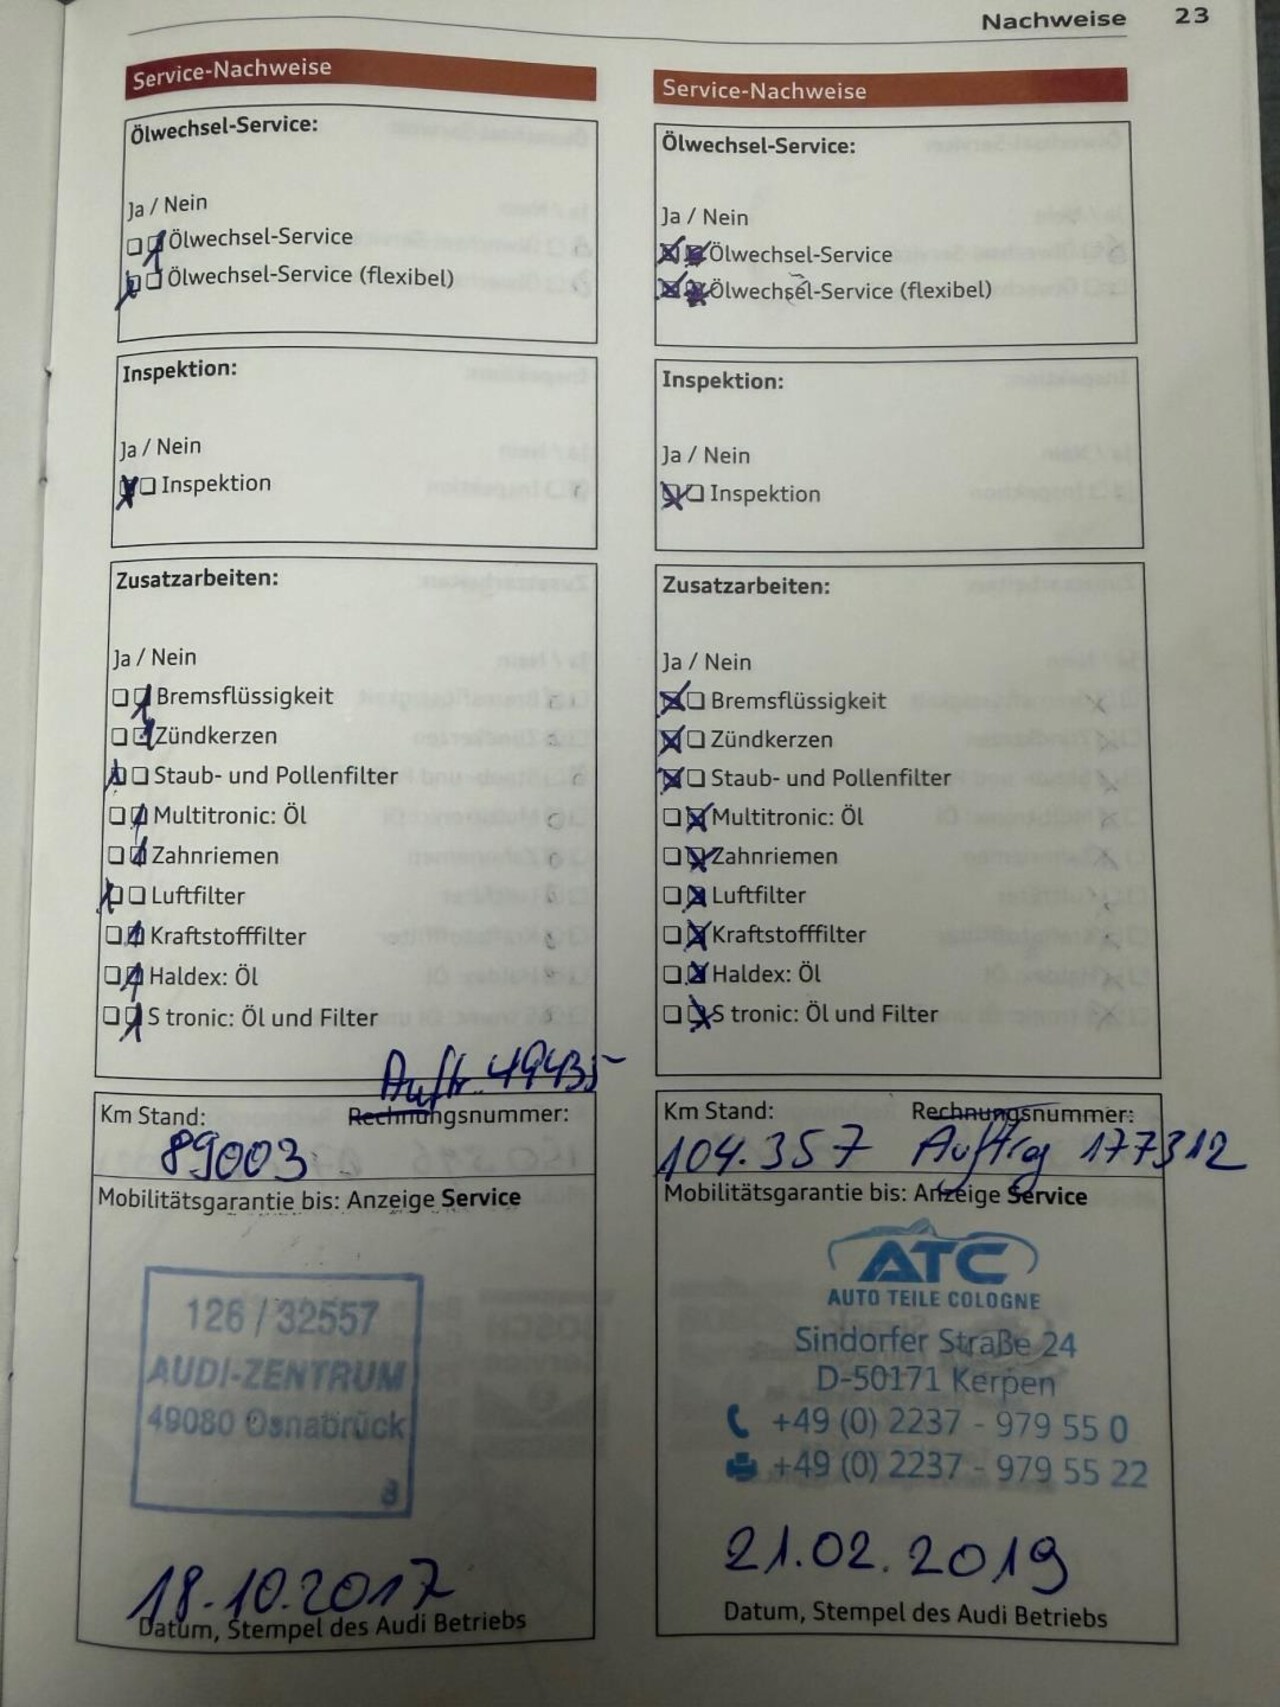 Nachweise 23
Service-Nachweise
Ölwechsel-Service:
Ja / Nein
Ölwechsel-Service
Ölwechsel-Service (flexibel)
Inspektion:
Ja / Nein
Inspektion
Zusatzarbeiten:
Ja / Nein
Bremsflüssigkeit
Zündkerzen
Staub- und Pollenfilter
Multitronic: Öl
Zahnriemen
Luftfilter
Kraftstofffilter
Haldex: Öl
S tronic: Öl und Filter
Auftr. 49435
Km Stand: Rechnungsnummer:
89003
Mobilitätsgarantie bis: Anzeige Service
126 / 32557
AUDI-ZENTRUM
49080 Osnabrück
3
18.10.2017
Datum, Stempel des Audi Betriebs
Service-Nachweise
Ölwechsel-Service:
Ja / Nein
Ölwechsel-Service
Ölwechsel-Service (flexibel)
Inspektion:
Ja / Nein
Inspektion
Zusatzarbeiten:
Ja / Nein
Bremsflüssigkeit
Zündkerzen
Staub- und Pollenfilter
Multitronic: Öl
Zahnriemen
Luftfilter
Kraftstofffilter
Haldex: Öl
S tronic: Öl und Filter
Km Stand: Rechnungsnummer:
104.357 Auftrag 177312
Mobilitätsgarantie bis: Anzeige Service
ATC
AUTO TEILE COLOGNE
Sindorfer Straße 24
D-50171 Kerpen
+49 (0) 2237 - 979 55 0
+49 (0) 2237 - 979 55 22
21.02.2019
Datum, Stempel des Audi Betriebs